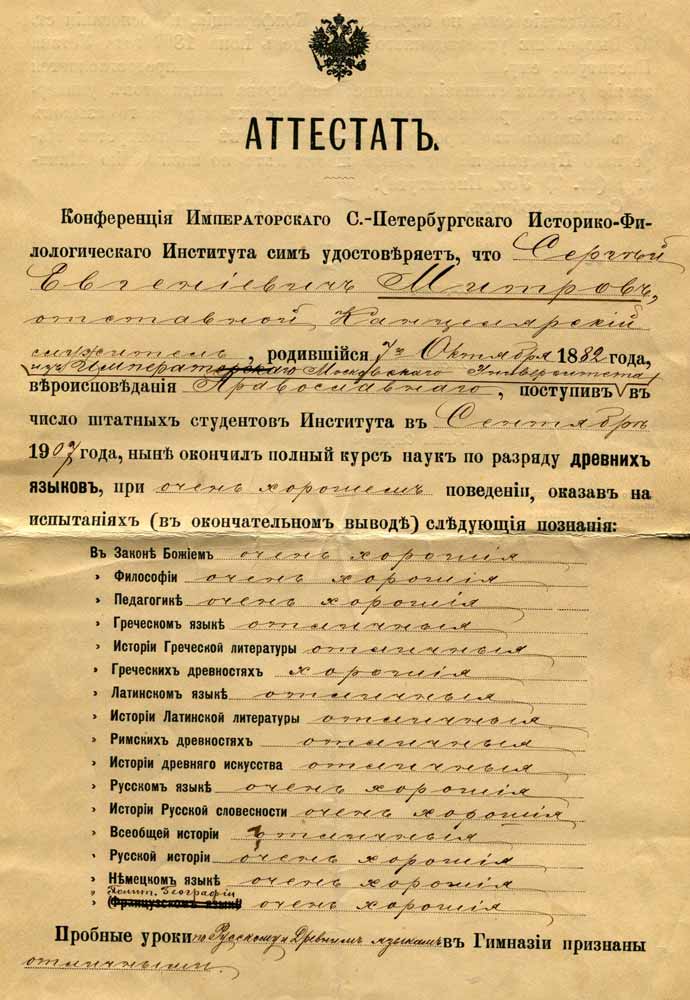 АТТЕСТАТЪ.
Конференція Императорскаго С.-Петербургскаго Историко-Фи-
лологическаго Института симъ удостовѣряетъ, что Сергѣй
Евгеніевичъ Митровъ,
отставной Канцелярскій
служитель, родившійся 7го Октября 1882 года,
изъ Императорскаго Московскаго Университета
вѣроисповѣданія Православнаго, поступивъ въ
число штатныхъ студентовъ Института въ Сентябрѣ
1907 года, нынѣ окончилъ полный курсъ наукъ по разряду древнихъ
языковъ, при очень хорошемъ поведеніи, оказавъ на
испытаніяхъ (въ окончательномъ выводѣ) слѣдующія познанія:
Въ Законѣ Божіемъ очень хорошія
» Философіи очень хорошія
» Педагогикѣ очень хорошія
» Греческомъ языкѣ отличныя
» Исторіи Греческой литературы отличныя
» Греческихъ древностяхъ хорошія
» Латинскомъ языкѣ отличныя
» Исторіи Латинской литературы отличныя
» Римскихъ древностяхъ отличныя
» Исторіи древняго искусства отличныя
» Русскомъ языкѣ очень хорошія
» Исторіи Русской словесности очень хорошія
» Всеобщей исторіи отличныя
» Русской исторіи очень хорошія
» Нѣмецкомъ языкѣ очень хорошія
» Полит. Географіи
» (Французскомъ языкѣ) очень хорошія
Пробные уроки по Русскому и Древнимъ языкамъ въ Гимназіи признаны
отличными.